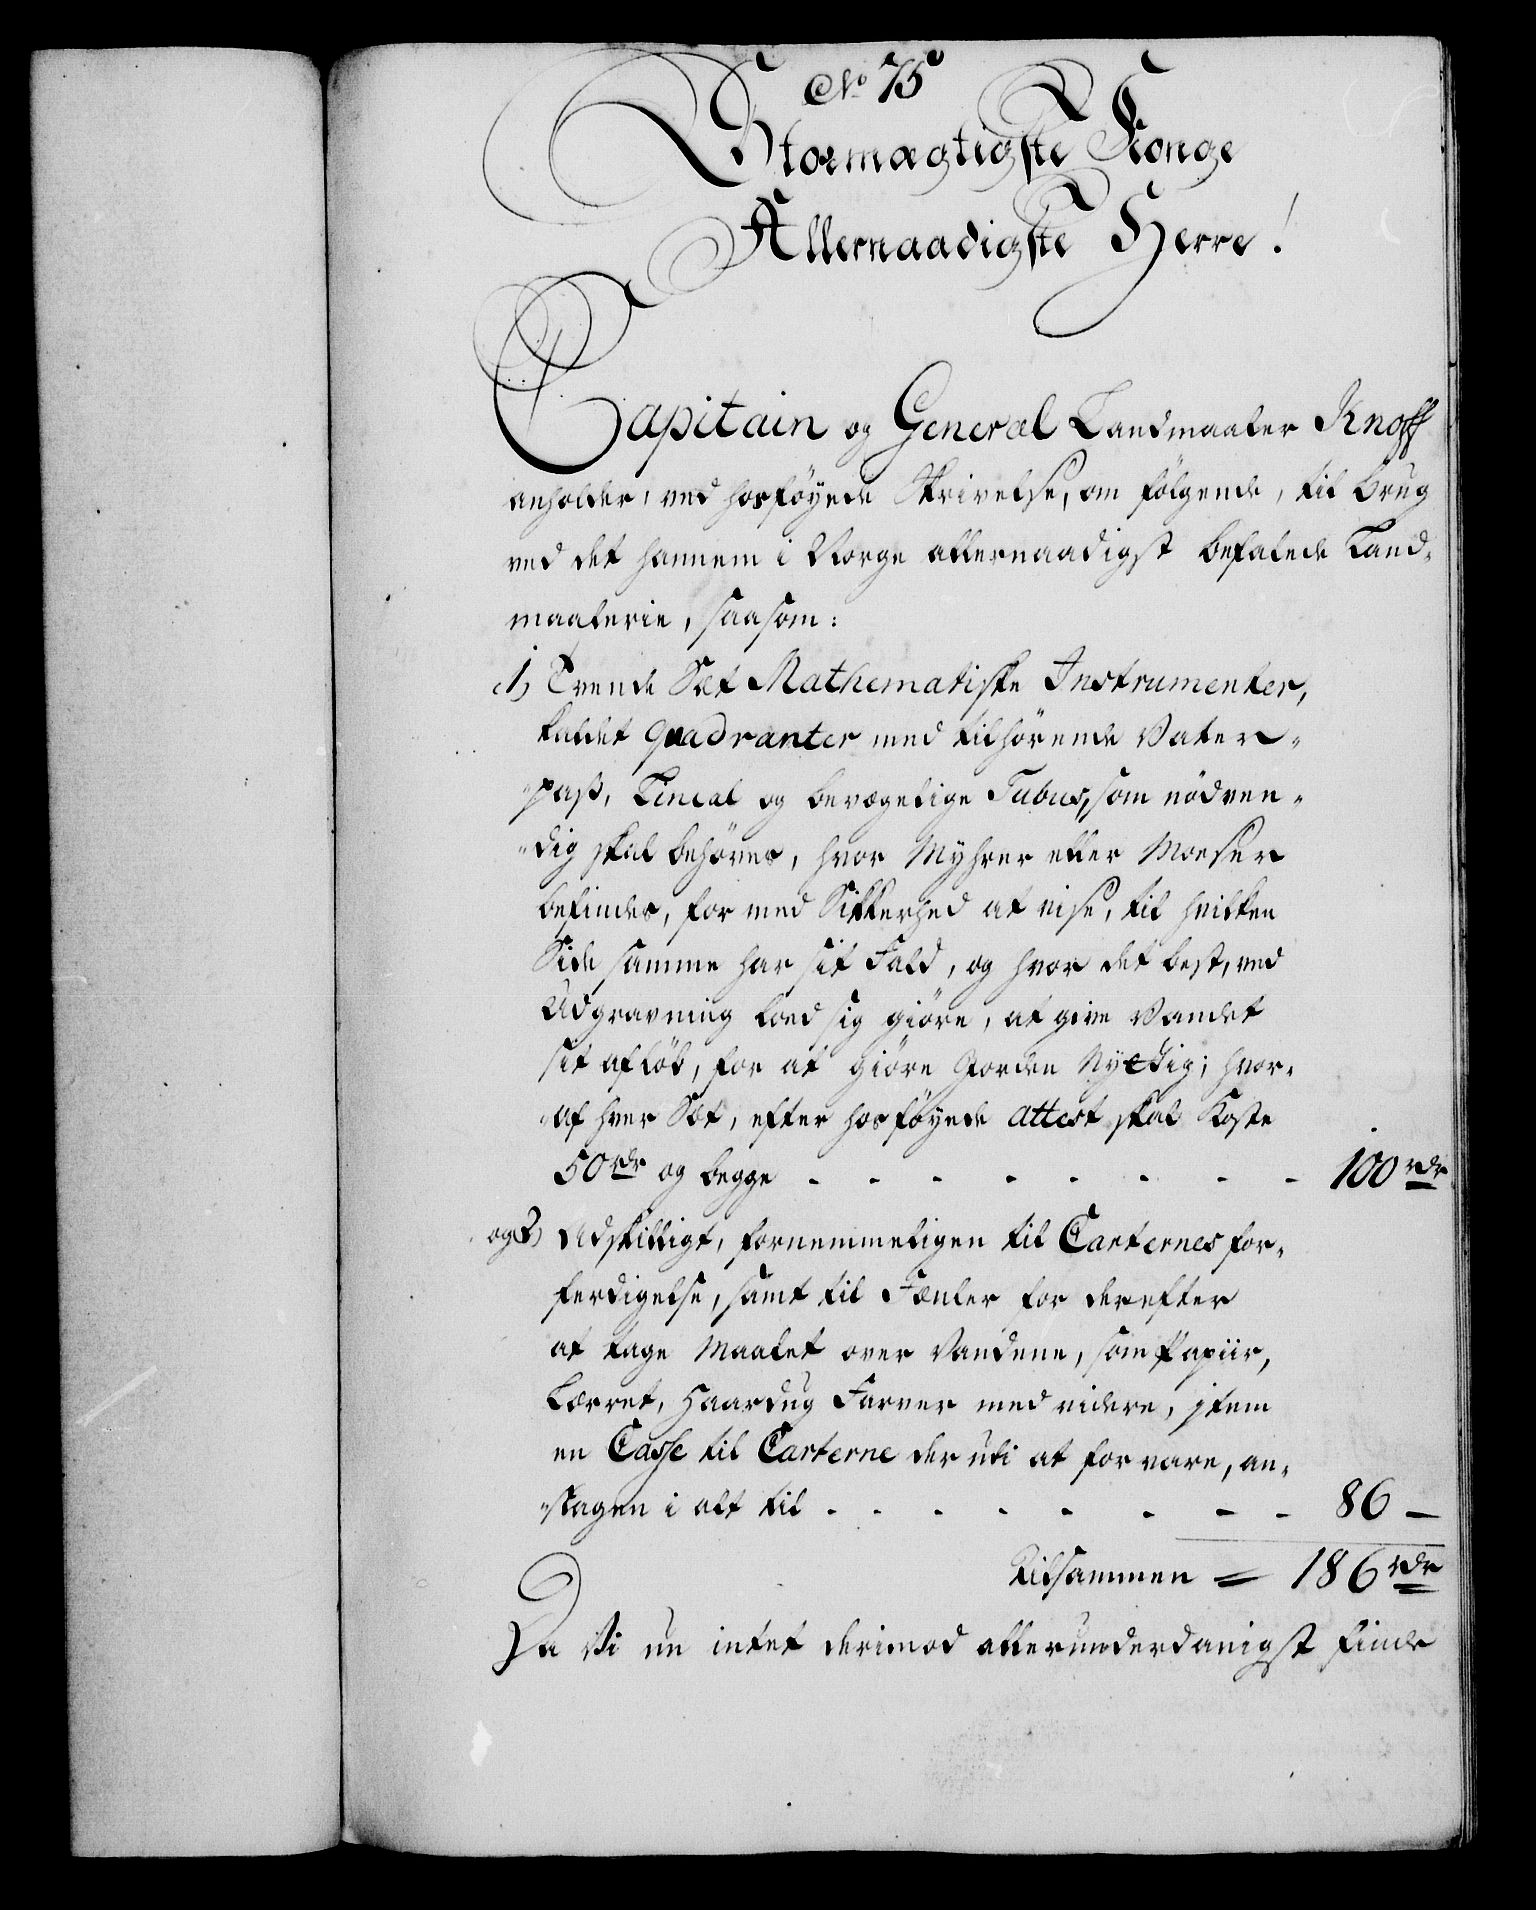 No 75
Stormægtigste Konge
Allernaadigste Herre!
Capitain og General Landmaaler Knoff
anholder, ved hosføyede Skrivelse, om følgende, til brug
ved det hannem i Norge allernaadigst befalede Land-
maalerie, saasom:
1, Tvende Sæt Mathematiske Instrumenter,
kaldet Quadranter med tilhørende Vater-
pass, Lineal og bevægelige Tubus, som nødven-
dig skal behøves, hvor Myhrer eller Moeser
befindes, for med Sikkerhed at vise, til hvilken
Side samme har sit Fald, og hvor det best, ved
Udgravning loed sig giøre, at give Vandet
sit afløb, for at giøre Jorden Nyttig; hvor-
af hver Sæt, efter hosføyede Attest skal Koste
50 rdr og begge - - - - - - - - 100 rdr
og 2) Adskilligt, fornemmeligen til Carternes for-
ferdigelse, samt til Jænler for derefter
at tage Maalet over Vandene, som Papiir,
Lærret, Haardug Farver med videre, item
en Casse til Carterne derudi at forvare, an-
slagen i alt til - - - - - - - - 86 -
Tilsammen = 186 rdr
Da Vi nu intet derimod allerunderdanigst finde